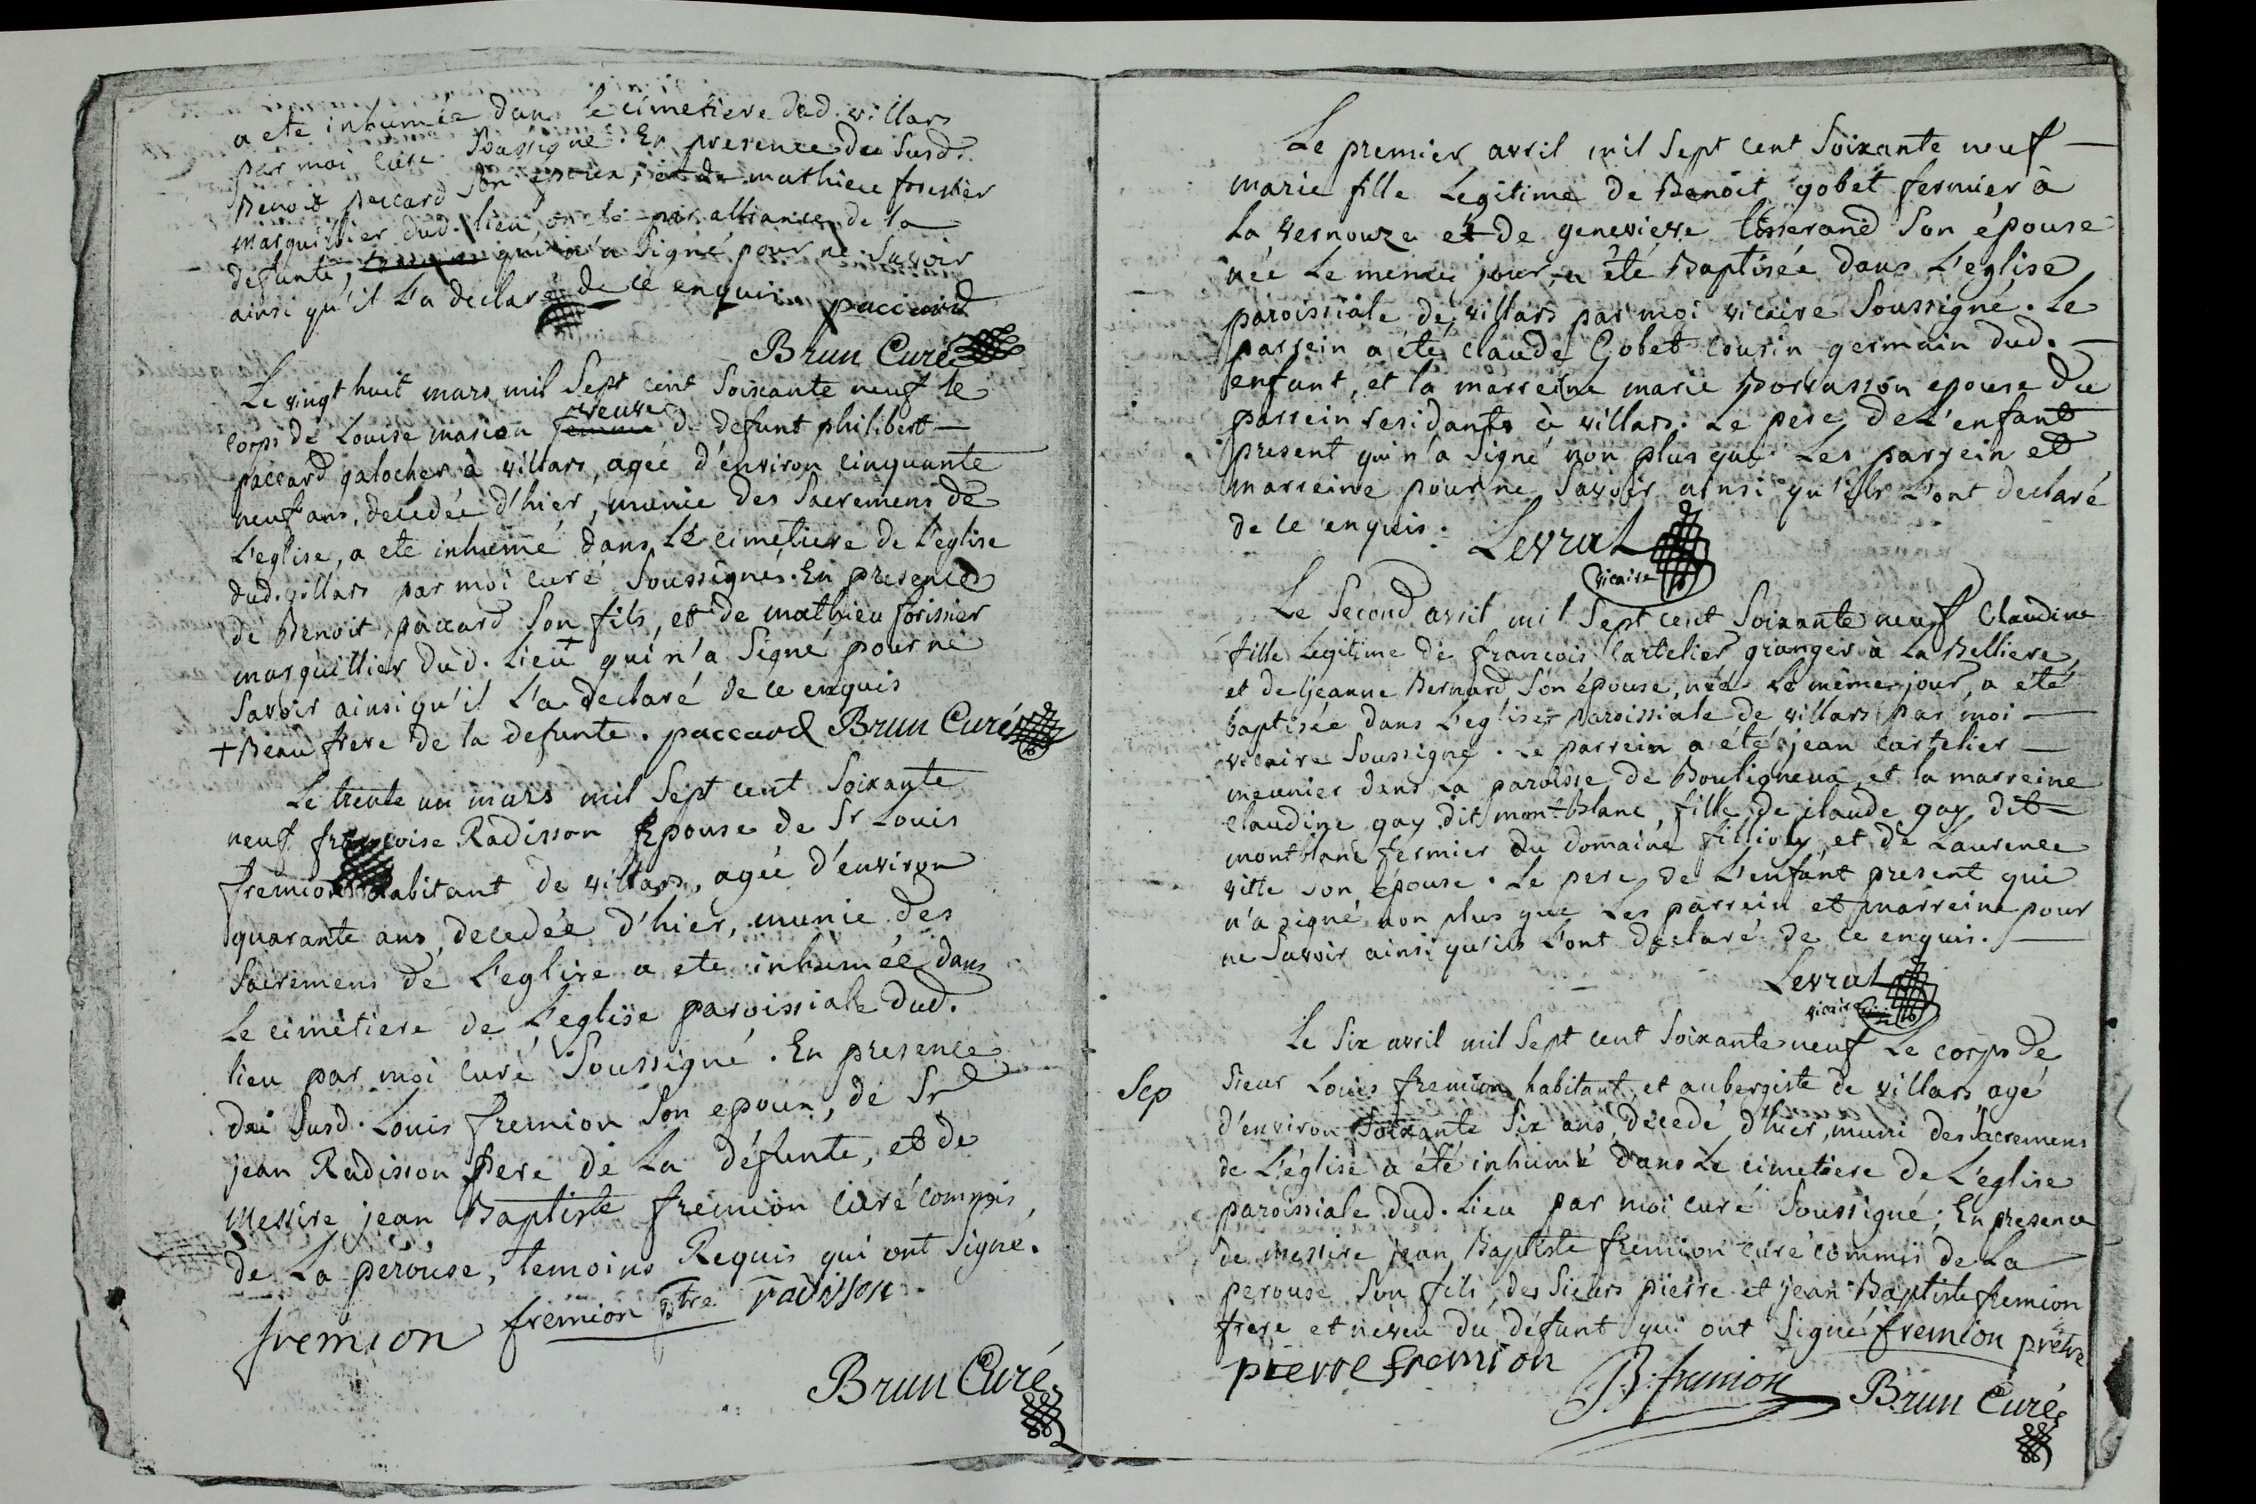 a ete inhumée dans le cimetiere dud. villars
par moi curé Soussigné. En presence du susd.
Benoit paccard son epoux, et de mathieu forissier
marguillier dud. lieu, par alliance de la
defunte, qui n'a signé pour ne savoir
ainsi qu'il L'a declaré de ce enquis. paccard
Brun Curé
Le vingt huit mars mil Sept cent Soixante neuf le
corps de Louise marion veuve de defunt philibert
paccard galocher à villars, agée d'environ cinquante
neuf ans, decedée d'hier, munie des Sacremens de
L'eglise, a ete inhumé dans Le cimetiere de L'eglise
dud. villars par moi curé Soussigné. En presence
de Benoit paccard Son fils, et de mathieu forissier
marguillier dud. Lieu + qui n'a Signé pour ne
Savoir ainsi qu'il L'a declaré de ce enquis
+ Beau frere de la defunte. paccard Brun Curé
Le trente un mars mil Sept cent Soixante
neuf françoise Radisson Epouse de Sr Louis
fremion habitant de villars, agée d'environ
quarante ans, decedée d'hier, munie des
Sacremens de L'eglise a ete inhumée dans
Le cimetiere de L'eglise paroissiale dud.
lieu par moi curé Soussigné. En presence
du Susd. Louis fremion Son epoux, de Sr
jean Radisson Pere de La défunte, et de
Messire jean Baptiste fremion curé commis
de La perouse, temoins Requis qui ont Signé.
fremion fremion ptre radisson
Brun Curé
Le premier avril mil Sept cent Soixante neuf
marie fille Legitime de Benoit gobet fermier à
La vernouze et de genevieve tisserand Son épouse
née Le meme jour, a été Baptisée dans L'eglise
paroissiale de villars par moi vicaire Soussigné. Le
parrein a été claude Gobet cousin germain dud.
enfant, et la marreine marie épouse du
parrein residants à villars. Le pere de L'enfant
present qui n'a Signé non plus que Les parrein et
marreine pour ne Savoir ainsi qu'ils L'ont declaré
de ce enquis. Levrat
vicaire
Le Second avril mil Sept cent Soixante neuf Claudine
fille Legitime de françois Cartelier granger à La Belliere,
et de jeanne Bernard Son épouse, née Le même jour, a été
baptisée dans L'eglise paroissiale de villars par moi
vicaire Soussigné. Le parrein a été jean cartelier
meunier dans La paroisse de Bouligneux, et la marreine
Claudine gay dit montblanc, fille de claude gay dit
montblanc fermier du domaine et de Laurence
ville son épouse. Le pere de L'enfant present qui
n'a signé non plus que Les parrein et marreine pour
ne Savoir ainsi qu'ils L'ont declaré de ce enquis.
Levrat
vicaire
Le Six avril mil Sept cent Soixante neuf Le corps de
Sep Sieur Louis fremion habitant et aubergiste de villars agé
d'environ Soixante Six ans, décedé d'hier, muni des Sacremens
de L'église a été inhumé dans Le cimetiere de L'église
paroissiale dud. Lieu par moi curé Soussigné; En presence
de messire jean Baptiste fremion curé commis de La
perouse Son fils, des Sieurs pierre et jean Baptiste fremion
frere et neveu du défunt qui ont Signé fremion prêtre
pierre fremion B. fremion Brun Curé